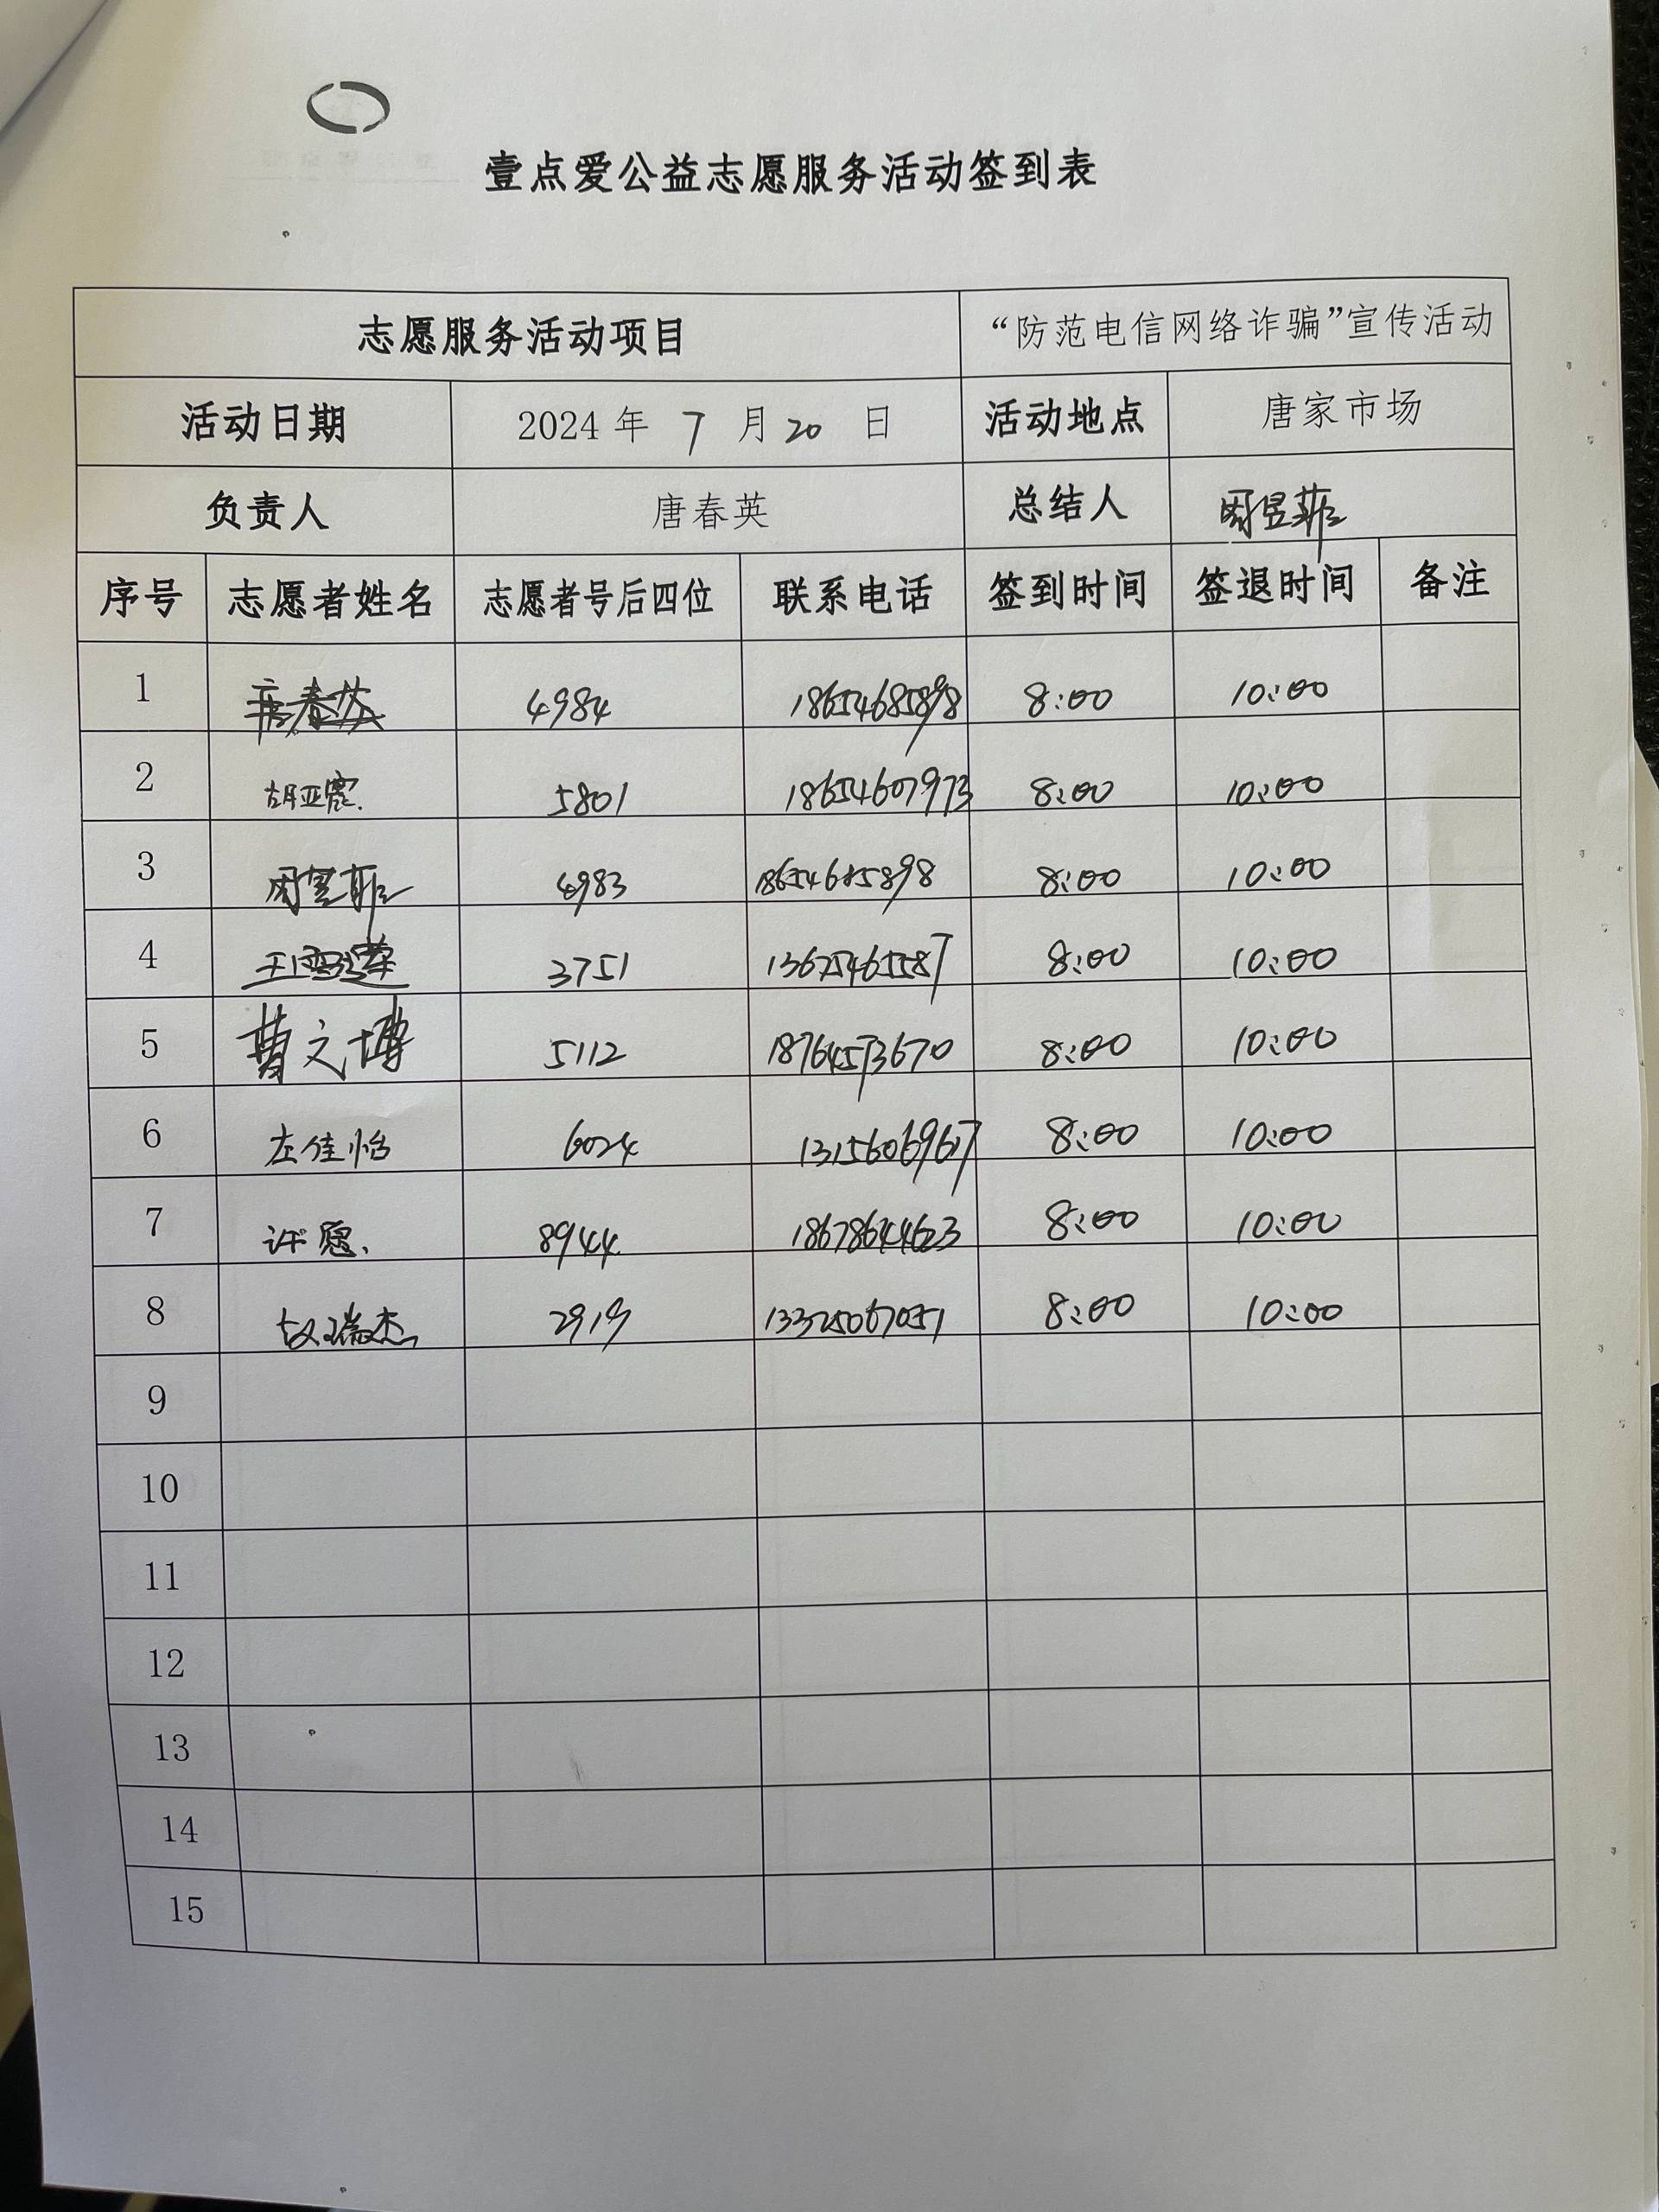 壹点爱公益志愿服务活动签到表
志愿服务活动项目 “防范电信网络诈骗”宣传活动
活动日期 2024 年 7 月 20 日 活动地点 唐家市场
负责人 唐春英 总结人 周昱菲
序号 志愿者姓名 志愿者号后四位 联系电话 签到时间 签退时间 备注
1 唐春英 4984 18654685898 8:00 10:00
2 胡亚震 5801 18654607973 8:00 10:00
3 周昱菲 4983 18654685898 8:00 10:00
4 王雪莲 3751 13675465587 8:00 10:00
5 曹文博 5112 18764573670 8:00 10:00
6 左佳怡 6024 13156069617 8:00 10:00
7 许愿 8944 18678644623 8:00 10:00
8 瑞杰 2919 13325067051 8:00 10:00
9
10
11
12
13
14
15